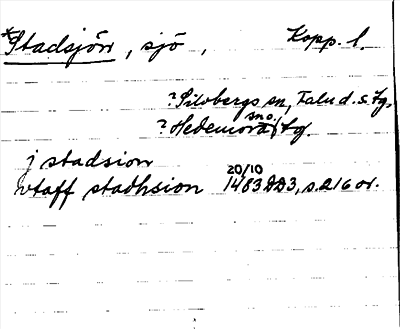 *Stadsjön, sjö, Kopp. l.
?Silvbergs sn, Falu d. s. fg.
?Hedemora sno. fg.
j stadsion
vtaff stadhsion 20/10 1483 DD3, s. 216 or.